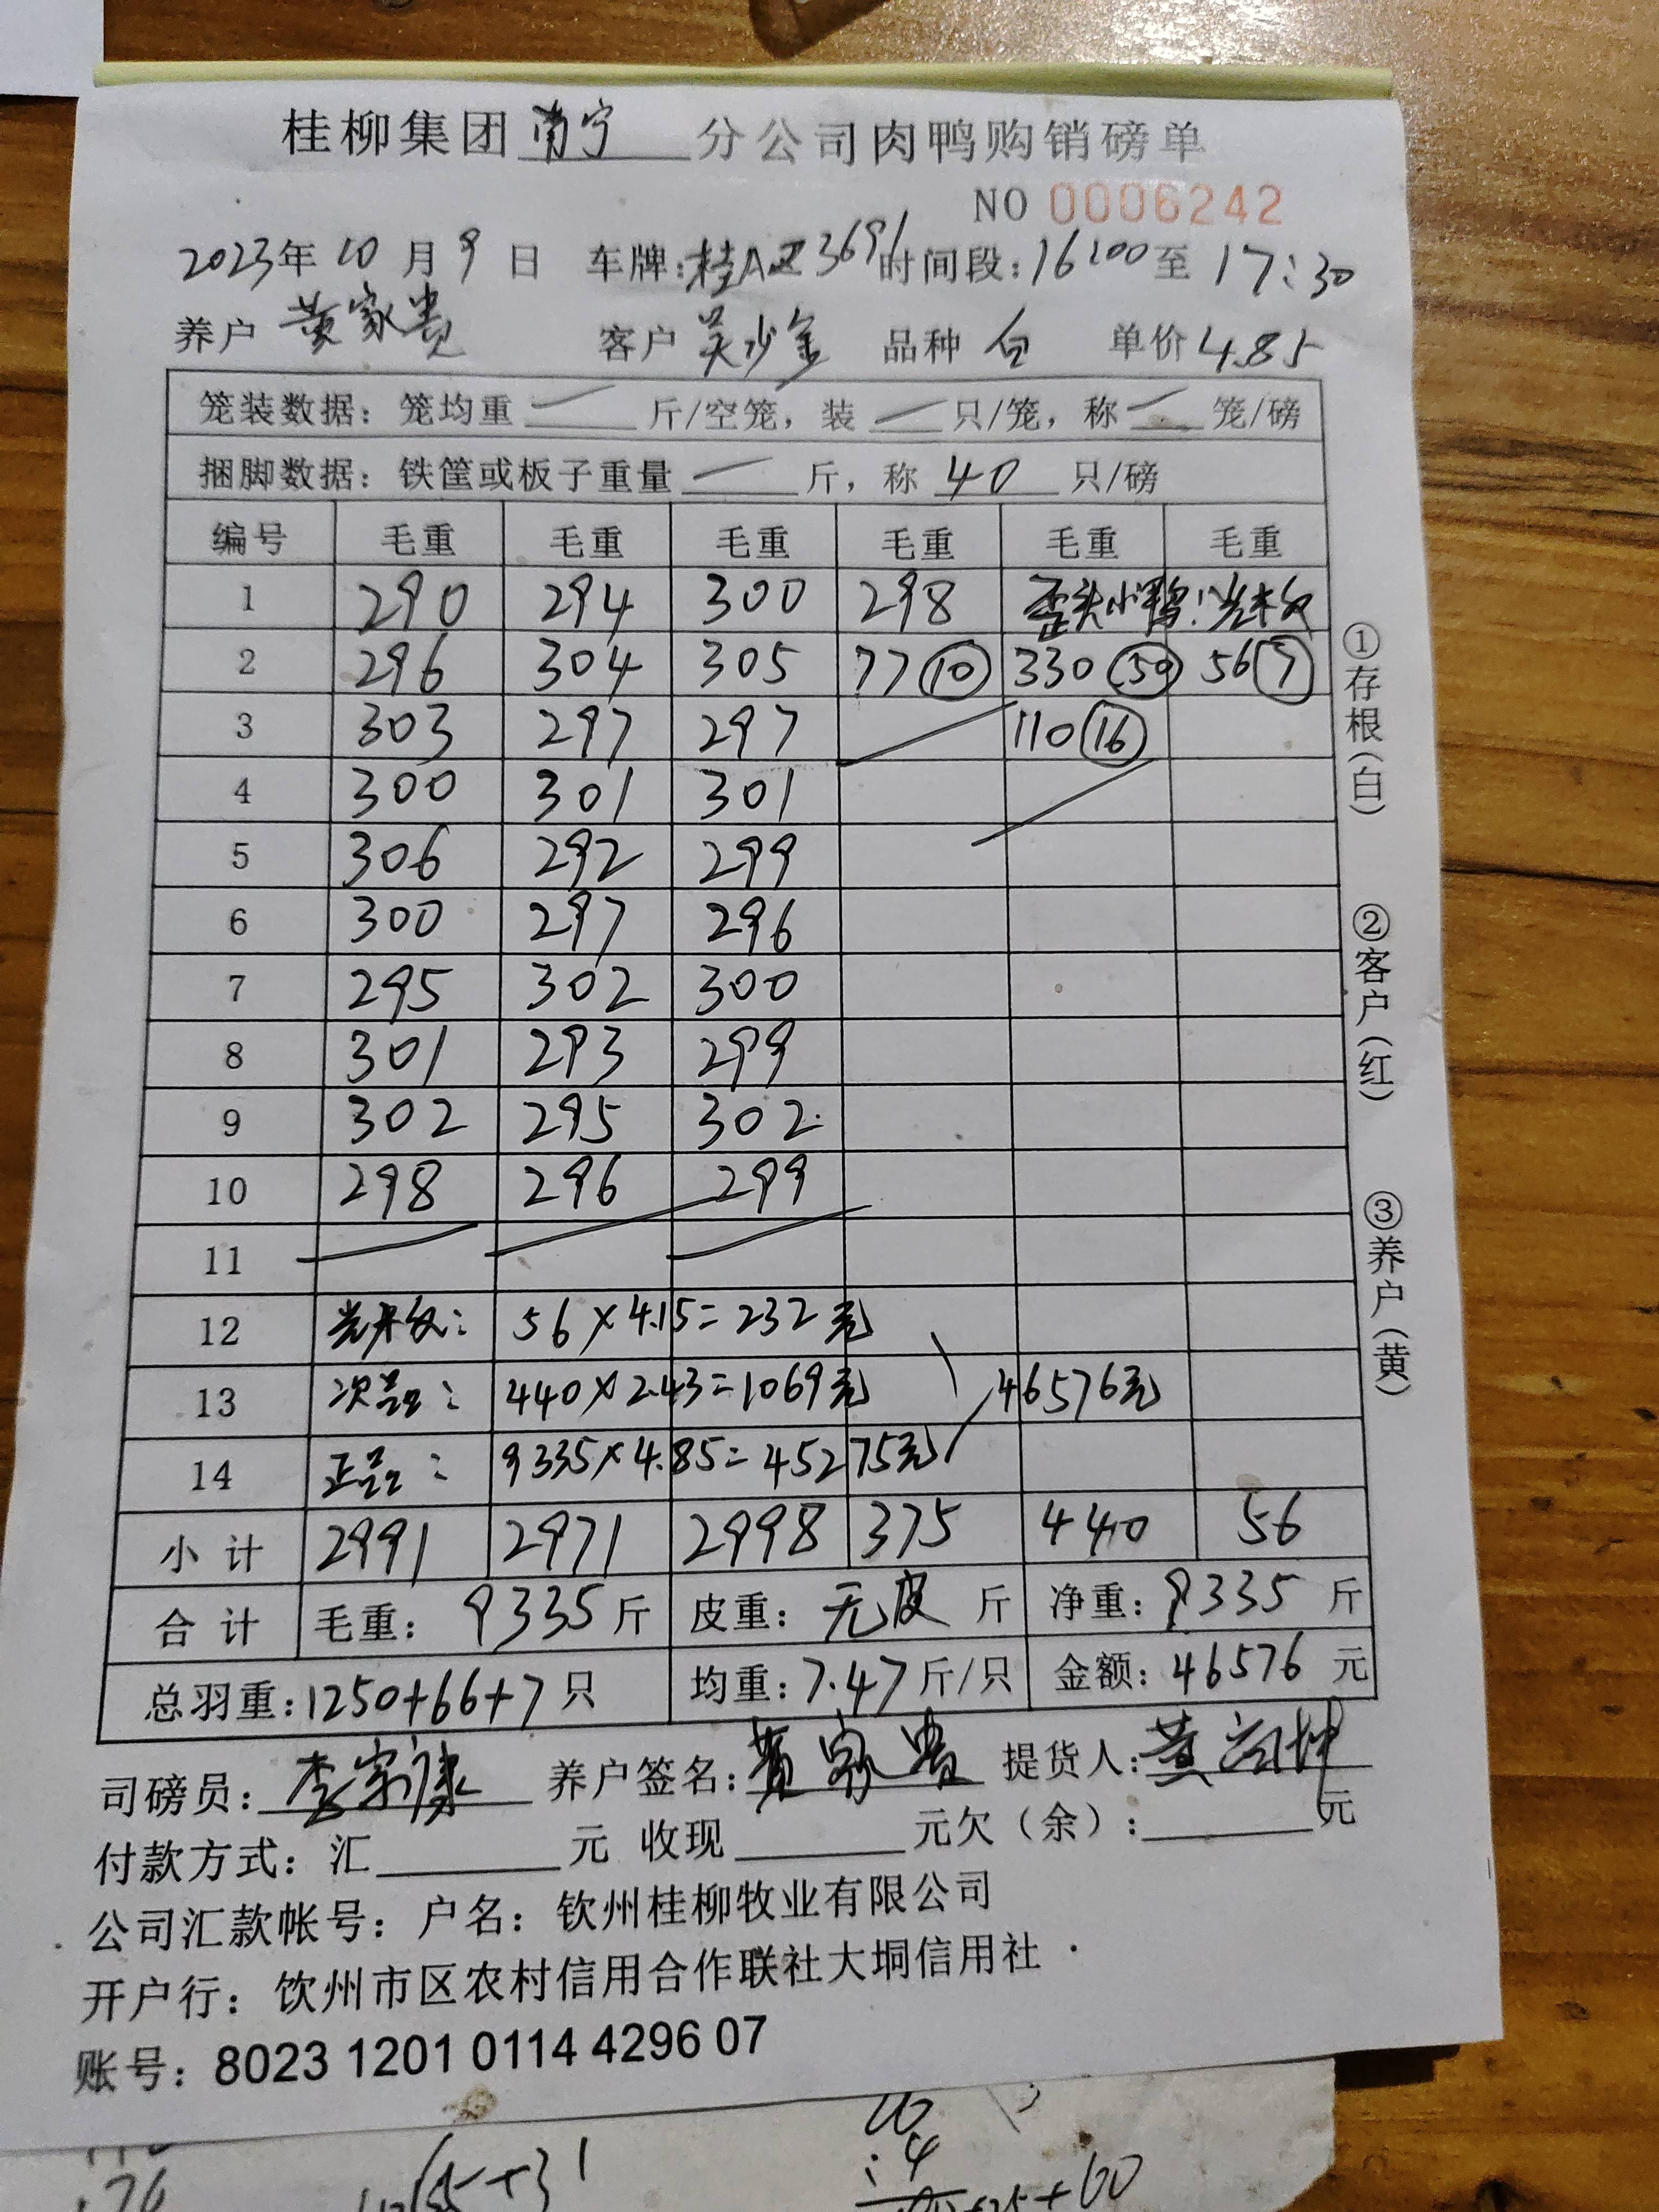 桂柳集团南宁分公司肉鸭购销磅单
NO 0006242
2023年10月9日 车牌:桂A 3691 时间段:16:00至17:30
养户 黄家贵 客户 吴少金 品种 白 单价 4.85
笼装数据: 笼均重 — 斤/空笼, 装 — 只/笼, 称 — 笼/磅
捆脚数据: 铁筐或板子重量 — 斤, 称 40 只/磅
编号 毛重 毛重 毛重 毛重 毛重 毛重
1 290 294 300 298 歪头小鸭
2 296 304 305 77⑩ 330㊿ 56⑦
3 303 297 297 110⑯
4 300 301 301
5 306 292 299
6 300 297 296
7 295 302 300
8 301 293 299
9 302 295 302
10 298 296 299
11
12 56×4.15=232元
13 次品: 440×2.43=1069元 46576元
14 正品: 9335×4.85=45275元
小计 2991 2971 2998 375 440 56
合计 毛重: 9335斤 皮重: 无皮 斤 净重: 9335 斤
总羽重:1250+66+7只 均重:7.47斤/只 金额:46576 元
司磅员:李宗康 养户签名:黄家贵 提货人:黄
付款方式: 汇 元 收现 元欠(余): 元
公司汇款帐号: 户名: 钦州桂柳牧业有限公司
开户行: 饮州市区农村信用合作联社大垌信用社
账号: 8023 1201 0114 4296 07
①存根(白)
②客户(红)
③养户(黄)